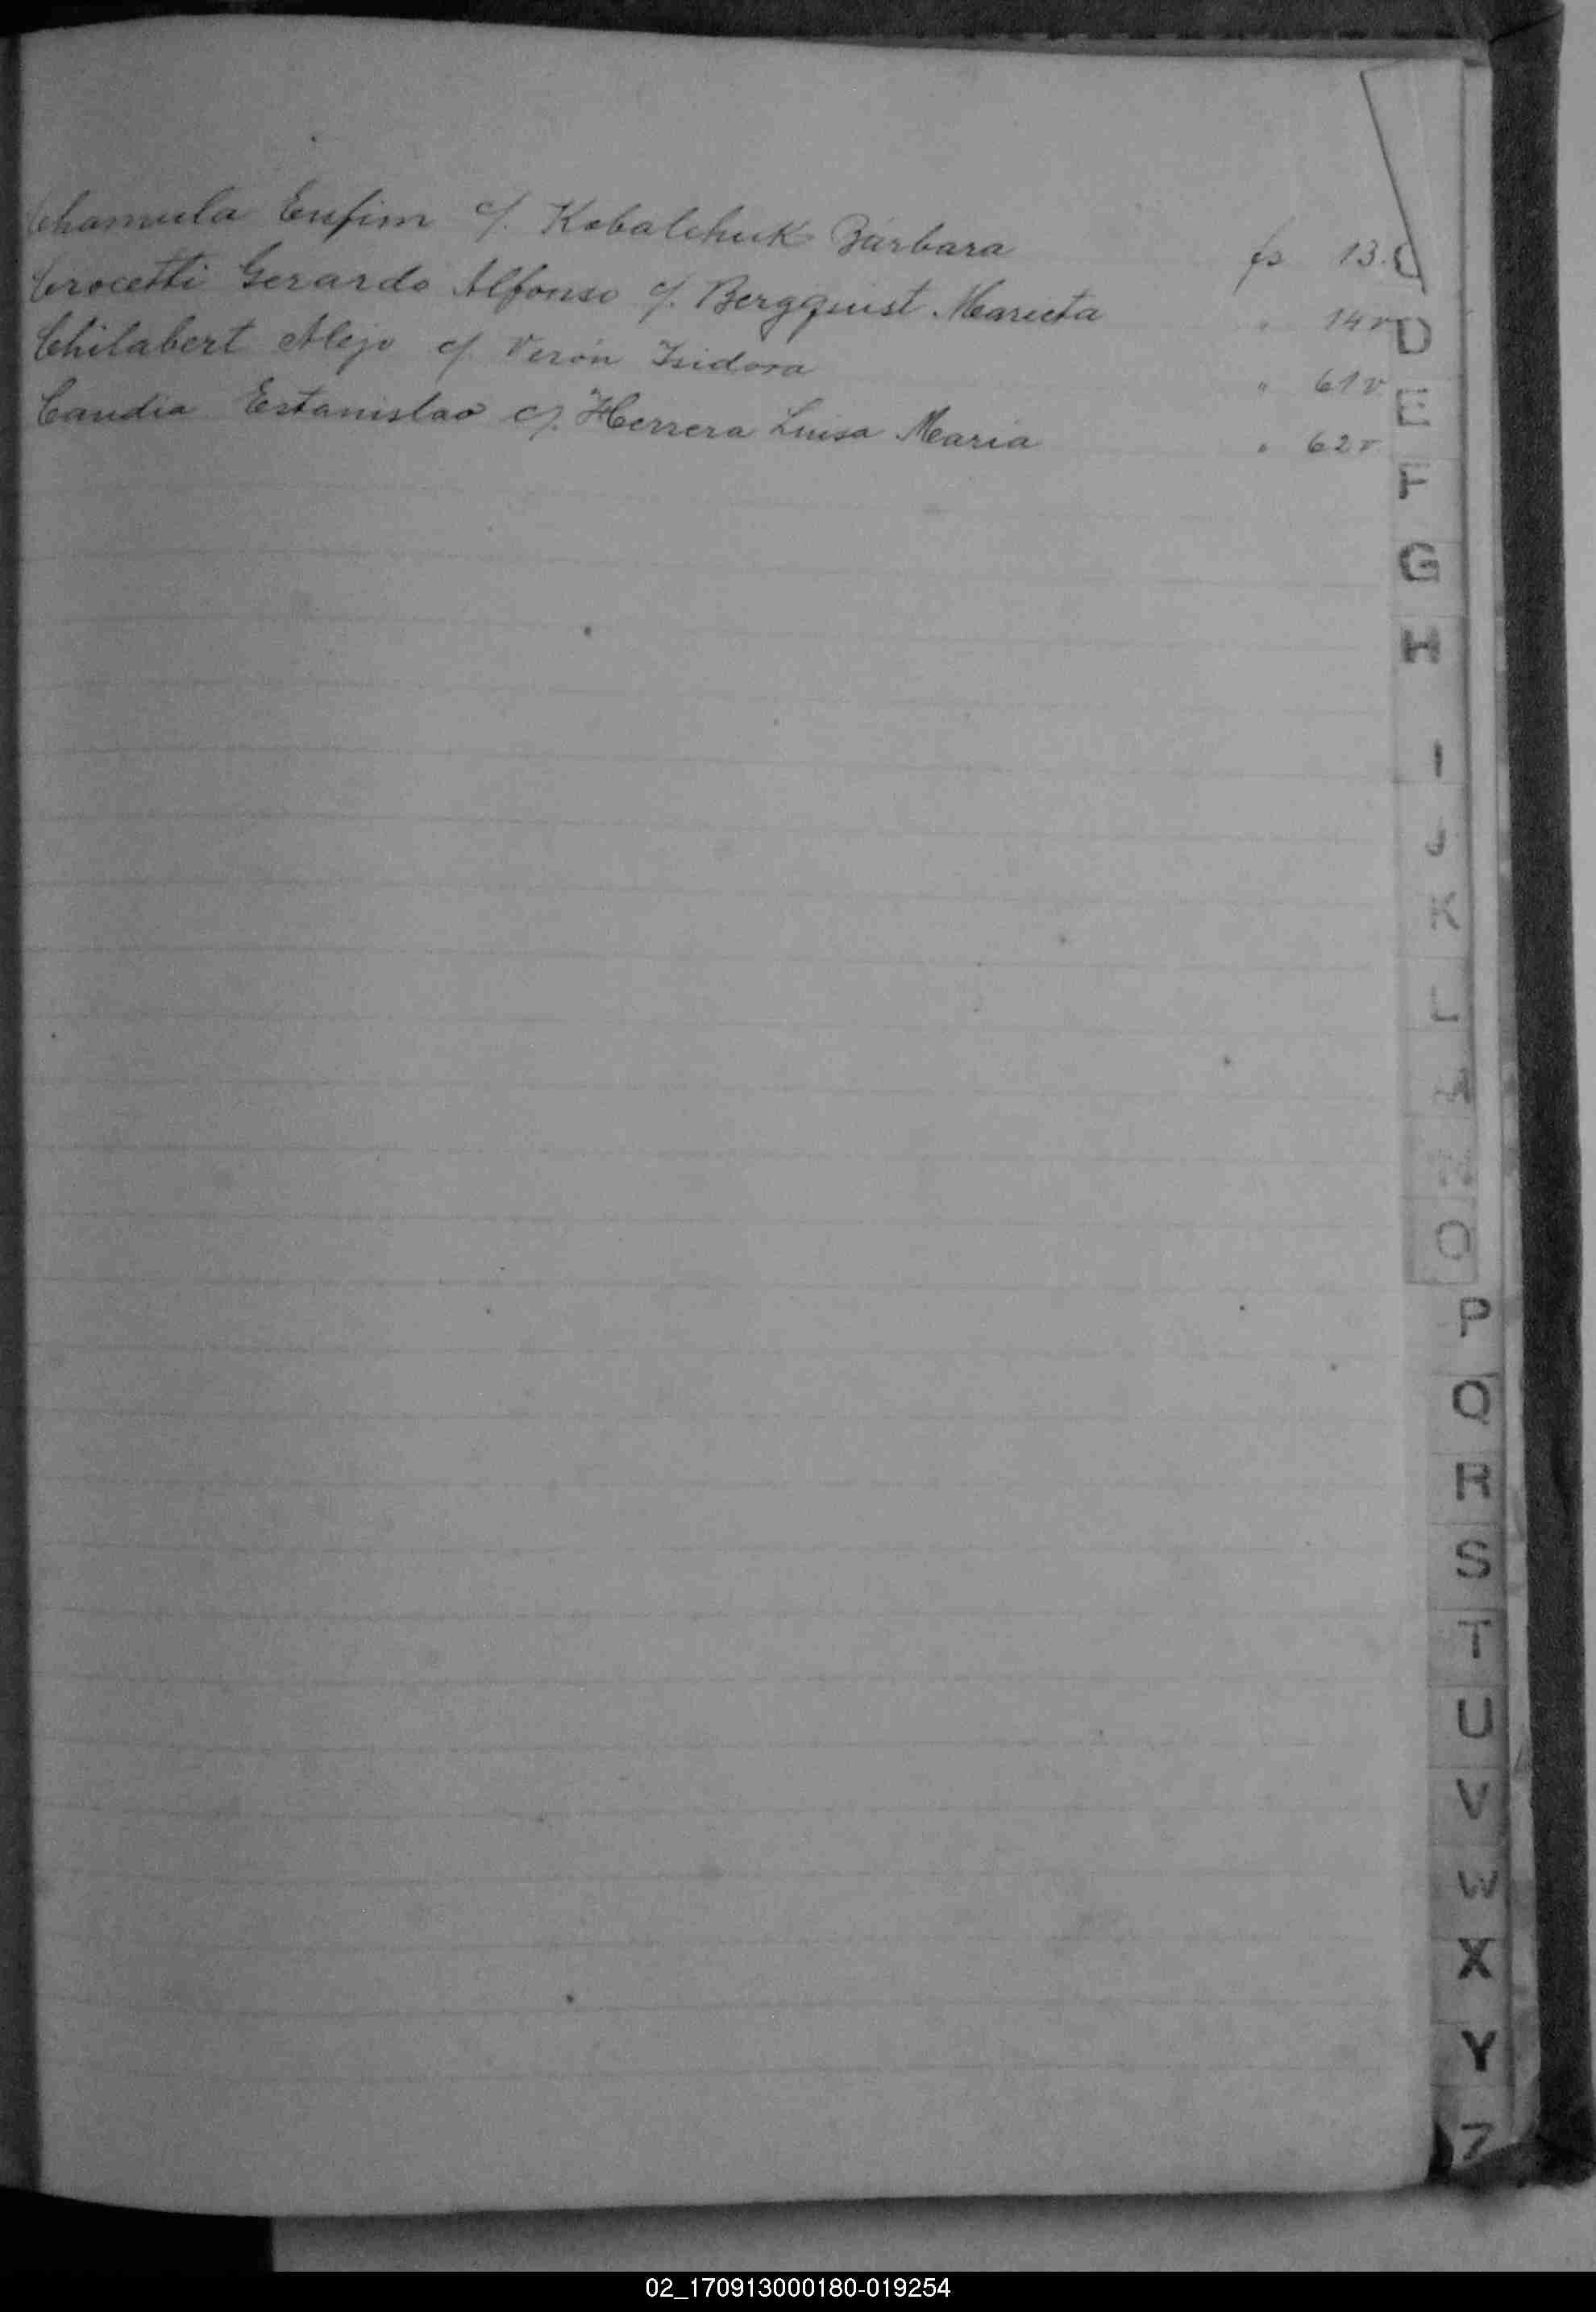 Chamula Eufim c/. Kobalchuk Bárbara fs 13.
Crocetti Gerardo Alfonso c/. Bergquist Marieta " 14v
Chilabert Alejo c/ Verón Isidora " 61v
Candia Estanislao c/. Herrera Luisa Maria " 62v
C
D
E
F
G
H
I
J
K
L
M
N
O
P
Q
R
S
T
U
V
W
X
Y
Z
02_170913000180-019254